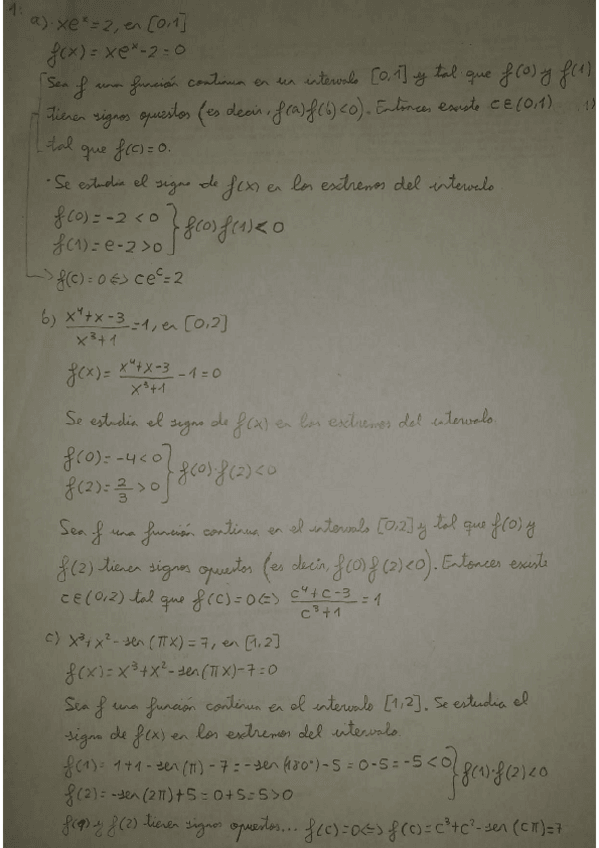 1:
a) · xeˣ = 2, en [0,1]
f(x) = xeˣ - 2 = 0
Sea f una función continua en un intervalo [0,1] y tal que f(0) y f(1)
tienen signos opuestos (es decir, f(a)f(b)<0). Entonces existe c∈(0,1)
tal que f(c)=0.
· Se estudia el signo de f(x) en los extremos del intervalo
f(0) = -2 < 0 } f(0) f(1) < 0
f(1) = e - 2 > 0
f(c) = 0 ⇔ ceᶜ = 2
b) (x⁴+x-3)/(x³+1) = 1, en [0,2]
f(x) = (x⁴+x-3)/(x³+1) - 1 = 0
Se estudia el signo de f(x) en los extremos del intervalo.
f(0) = -4 < 0 } f(0)·f(2) < 0
f(2) = 2/3 > 0
Sea f una función continua en el intervalo [0,2] y tal que f(0) y
f(2) tienen signos opuestos (es decir, f(0) f(2)<0). Entonces existe
c∈(0,2) tal que f(c)=0 ⇔ (c⁴+c-3)/(c³+1) = 1
c) x³+x²-sen(πx) = 7, en [1,2]
f(x) = x³+x²-sen(πx)-7 = 0
Sea f una función continua en el intervalo [1,2]. Se estudia el
signo de f(x) en los extremos del intervalo.
f(1) = 1+1-sen(π)-7 = -sen(180°)-5 = 0-5 = -5 < 0 } f(1)·f(2)<0
f(2) = -sen(2π)+5 = 0+5 = 5 > 0
y f(2) tienen signos opuestos... f(c)=0 ⇔ f(c) = c³+c²-sen(cπ)=7